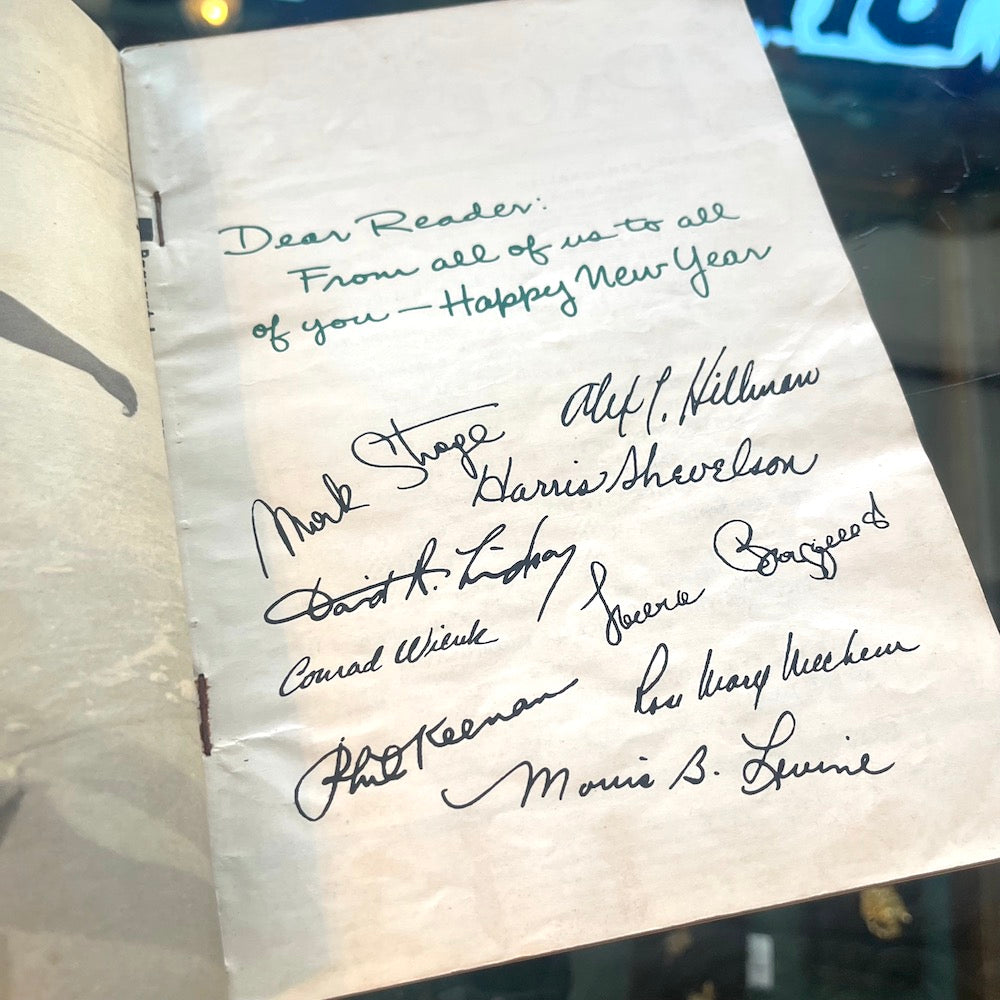 Dear Reader:
From all of us to all
of you — Happy New Year
Mark Strage
Alex L. Hillman
Harris Shevelson
David R. Lindsay
Conrad Wienk
Bourgeois
Phil Keenan
Rose Mary Mechem
Morris B. Levine